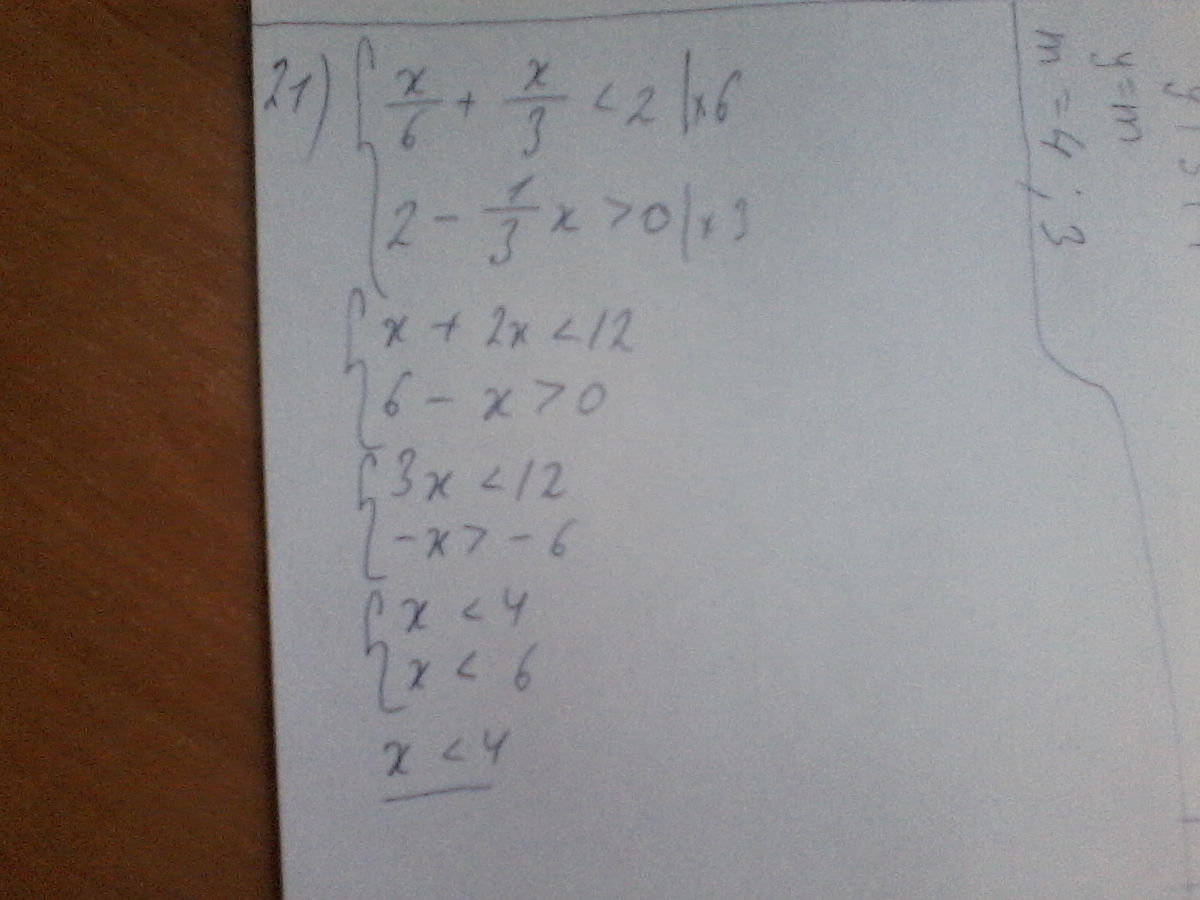 21) { x/6 + x/3 < 2 | × 6
2 - 1/3 x > 0 | × 3
{ x + 2x < 12
6 - x > 0
{ 3x < 12
-x > -6
{ x < 4
x < 6
x < 4
y = m
m = 4 ; 3